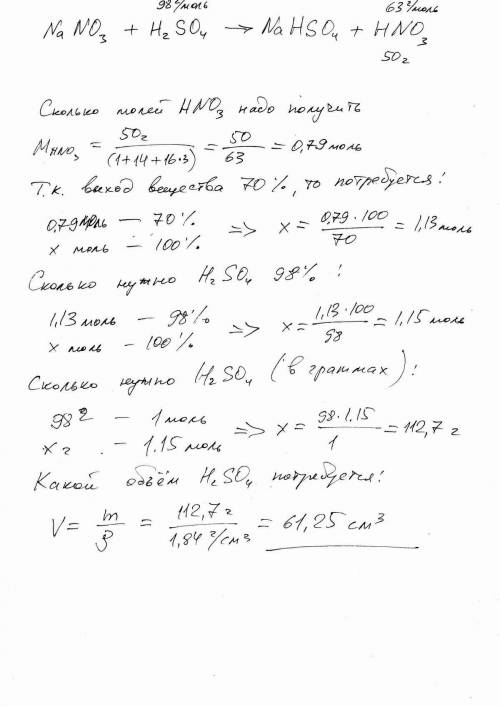 98 г/моль 63 г/моль
NaNO₃ + H₂SO₄ → NaHSO₄ + HNO₃
50 г
Сколько молей HNO₃ надо получить
M HNO₃ = 50 г / (1+14+16·3) = 50 / 63 = 0,79 моль
Т.к. выход вещества 70%, то потребуется:
0,79 моль — 70%
x моль — 100% => x = 0,79·100 / 70 = 1,13 моль
Сколько нужно H₂SO₄ 98%:
1,13 моль — 98%
x моль — 100% => x = 1,13·100 / 98 = 1,15 моль
Сколько нужно H₂SO₄ (в граммах):
98 г — 1 моль
x г — 1.15 моль => x = 98·1,15 / 1 = 112,7 г
Какой объём H₂SO₄ потребуется:
V = m / ρ = 112,7 г / 1,84 г/см³ = 61,25 см³